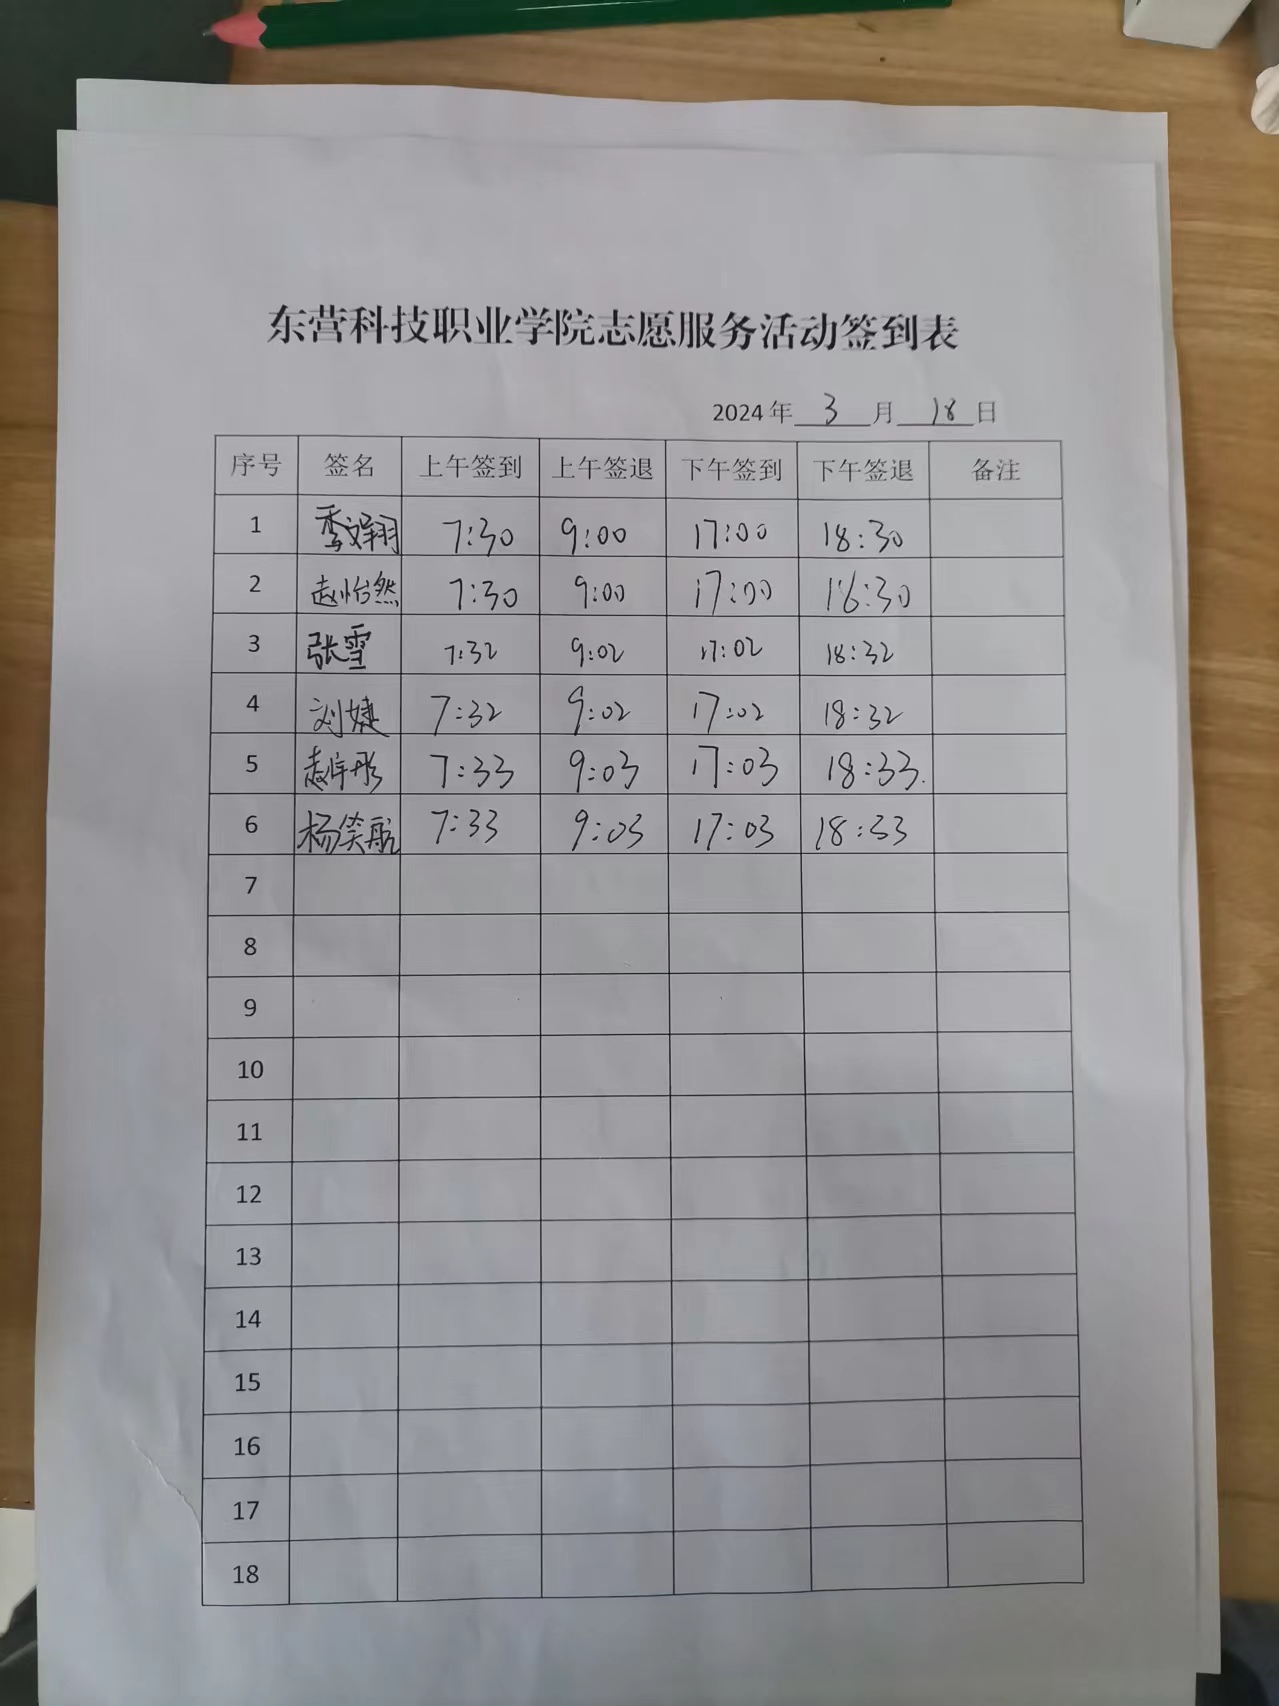 东营科技职业学院志愿服务活动签到表
2024年 3 月 18 日
序号 签名 上午签到 上午签退 下午签到 下午签退 备注
1 7:30 9:00 17:00 18:30
2 赵怡然 7:30 9:00 17:00 18:30
3 张雪 7:32 9:02 17:02 18:32
4 刘婕 7:32 9:02 17:02 18:32
5 赵宇彤 7:33 9:03 17:03 18:33
6 杨笑航 7:33 9:03 17:03 18:33
7
8
9
10
11
12
13
14
15
16
17
18